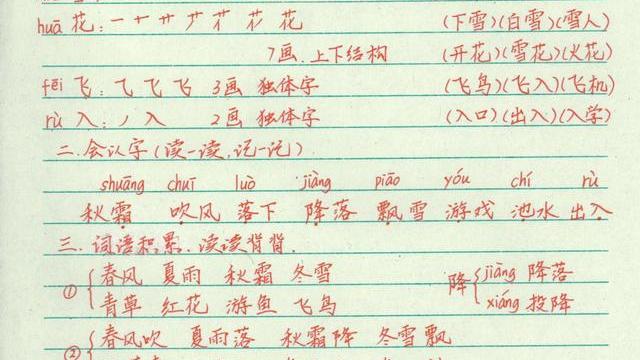 (下雪)(白雪)(雪人)
huā 花:一 十 艹 艹 芢 花 花
7画.上下结构 (开花)(雪花)(火花)
fēi 飞:乁 飞 飞 3画 独体字 (飞鸟)(飞入)(飞机)
rù 入:丿 入 2画 独体字 (入口)(出入)(入学)
二.会认字(读一读,记一记)
shuāng chuī luò jiàng piāo yóu chí rù
秋霜 吹风 落下 降落 飘雪 游戏 池水 出入
三.词语积累.读读背背.
① 春风 夏雨 秋霜 冬雪 降 jiàng 降落
青草 红花 游鱼 飞鸟 xiáng 投降
② 春风吹 夏雨落 秋霜降 冬雪飘